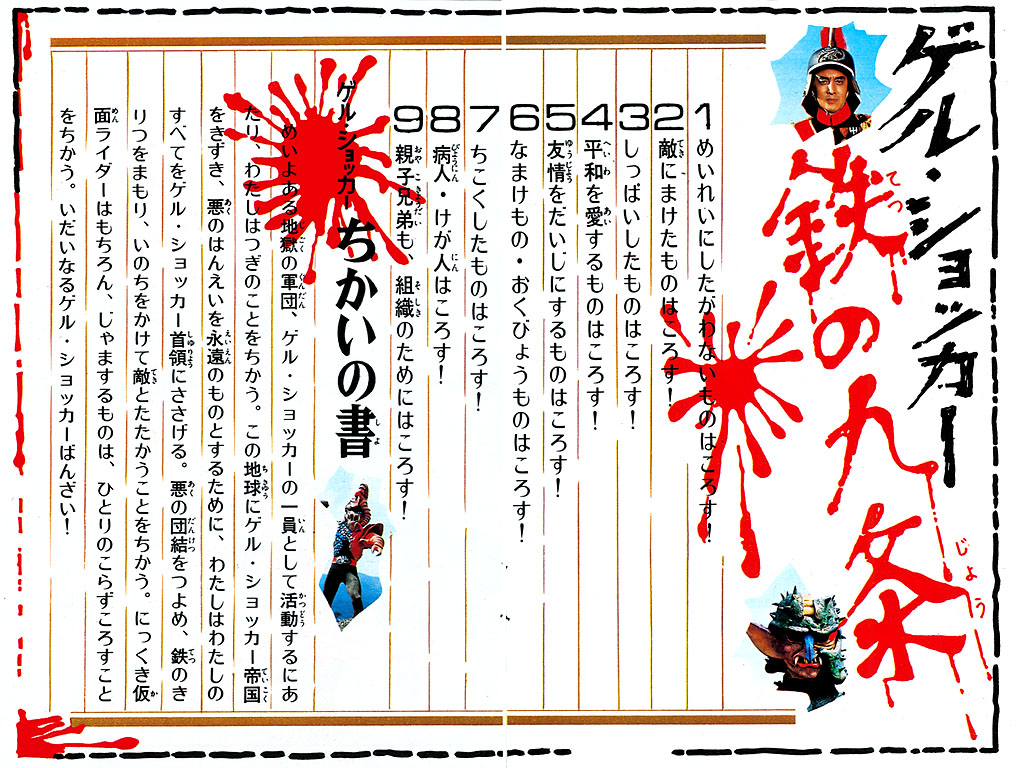 ゲル・ショッカー
鉄の九条
てつ
じょう
1 めいれいにしたがわないものはころす!
2 敵にまけたものはころす!
3 しっぱいしたものはころす!
4 平和を愛するものはころす!
5 友情をだいじにするものはころす!
6 なまけもの・おくびょうものはころす!
7 ちこくしたものはころす!
8 病人・けが人はころす!
9 親子兄弟も、組織のためにはころす!
ゲルショッカーちかいの書
めいよある地獄の軍団、ゲル・ショッカーの一員として活動するにあ
たり、わたしはつぎのことをちかう。この地球にゲル・ショッカー帝国
をきずき、悪のはんえいを永遠のものとするために、わたしはわたしの
すべてをゲル・ショッカー首領にささげる。悪の団結をつよめ、鉄のき
りつをまもり、いのちをかけて敵とたたかうことをちかう。にっくき仮
面ライダーはもちろん、じゃまするものは、ひとりのこらずころすこと
をちかう。いだいなるゲル・ショッカーばんざい!